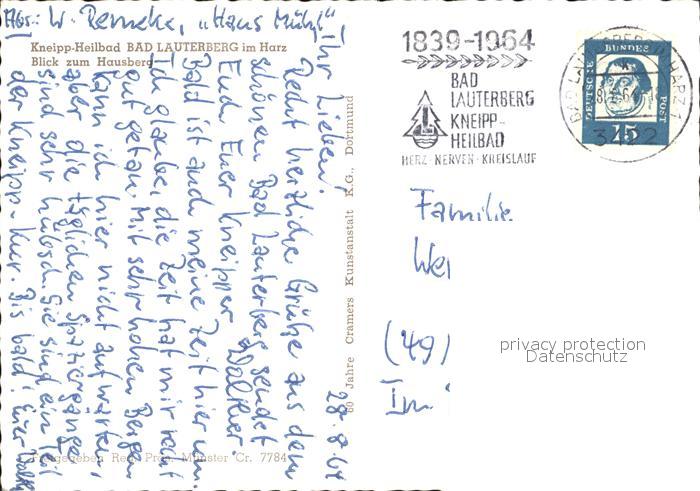 Abs.: W. Renneke, „Haus Mühl“
Kneipp-Heilbad BAD LAUTERBERG im Harz
Blick zum Hausberg
Ihr Lieben!
Recht herzliche Grüße aus dem
schönen Bad Lauterberg sendet
Euch Euer Kneipper Walther.
Bald ist auch meine Zeit hier um.
Ich glaube, die Zeit hat mir recht
gut getan. Mit sehr hohen Bergen
kann ich hier nicht aufwarten,
aber die täglichen Spaziergänge
sind sehr hübsch. Sie sind ein Teil
der Kneipp-Kur. Bis bald! Euer
28.8.64
60 Jahre Cramers Kunstanstalt K.G., Dortmund
Freigegeben Reg. Präs. Münster Cr. 7784
1839-1964
BAD
LAUTERBERG
KNEIPP-
HEILBAD
HERZ · NERVEN · KREISLAUF
DEUTSCHE BUNDESPOST
15
BAD LAUTERBERG IM HARZ 1
3422
Familie
(49)
privacy protection
Datenschutz